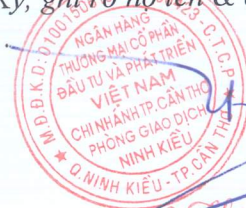 Ký, ghi rõ họ tên &
NGÂN HÀNG
THƯƠNG MẠI CỔ PHẦN
ĐẦU TƯ VÀ PHÁT TRIỂN
VIỆT NAM
CHI NHÁNH TP.CẦN THƠ
PHÒNG GIAO DỊCH
NINH KIỀU
Q.NINH KIỀU-TP.CẦN THƠ